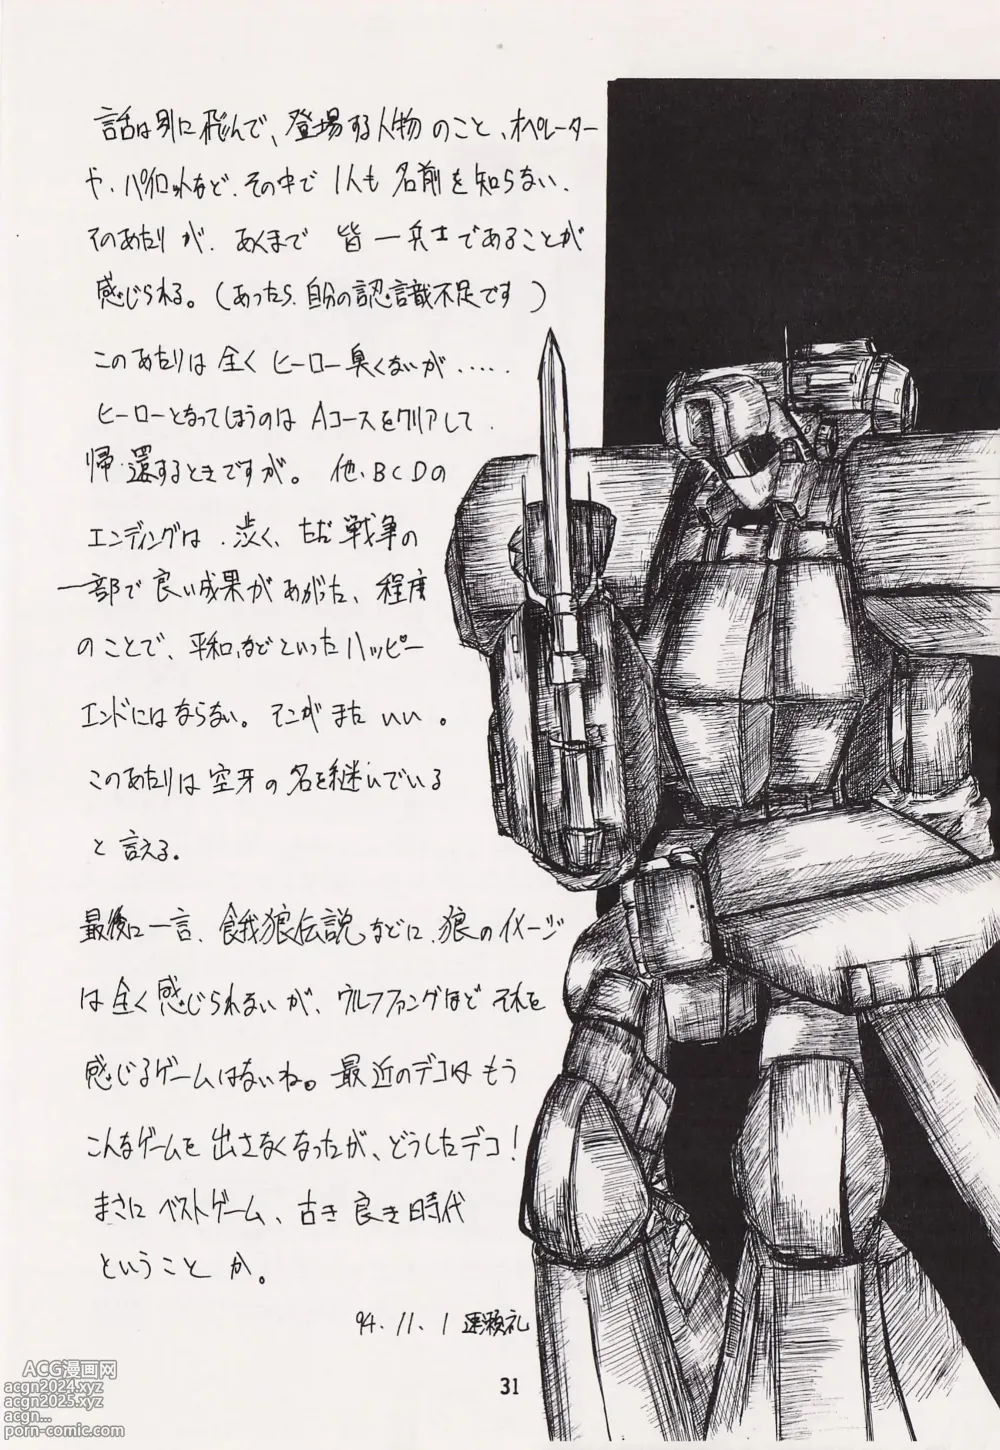 話は別に飛んで、登場する人物のこと、オペレーター
や、パイロットなど、その中で1人も名前を知らない、
そのあたりが、あくまで皆一兵士であることが
感じられる。(あったら、自分の認識不足です)
このあたりは全くヒーロー臭くないが.....
ヒーローとなってしまうのはAコースをクリアして、
帰還するときですが。他、BCDの
エンディングは、渋く、ただ戦争の
一部で良い成果があがった、程度
のことで、平和、などといったハッピー
エンドにはならない。そこがまたいい。
このあたりは空牙の名を継いでいる
と言える。
最後に一言、餓狼伝説などに、狼のイメージ
は全く感じられないが、ウルフファングほどそれを
感じるゲームはないね。最近のデコはもう
こんなゲームを出さなくなったが、どうしたデコ!
まさにベストゲーム、古き良き時代
ということか。
94.11.1 連瀬礼
31
ACG漫画网
acgn2024.xyz
acgn2025.xyz
acgn...
porn-comic.com